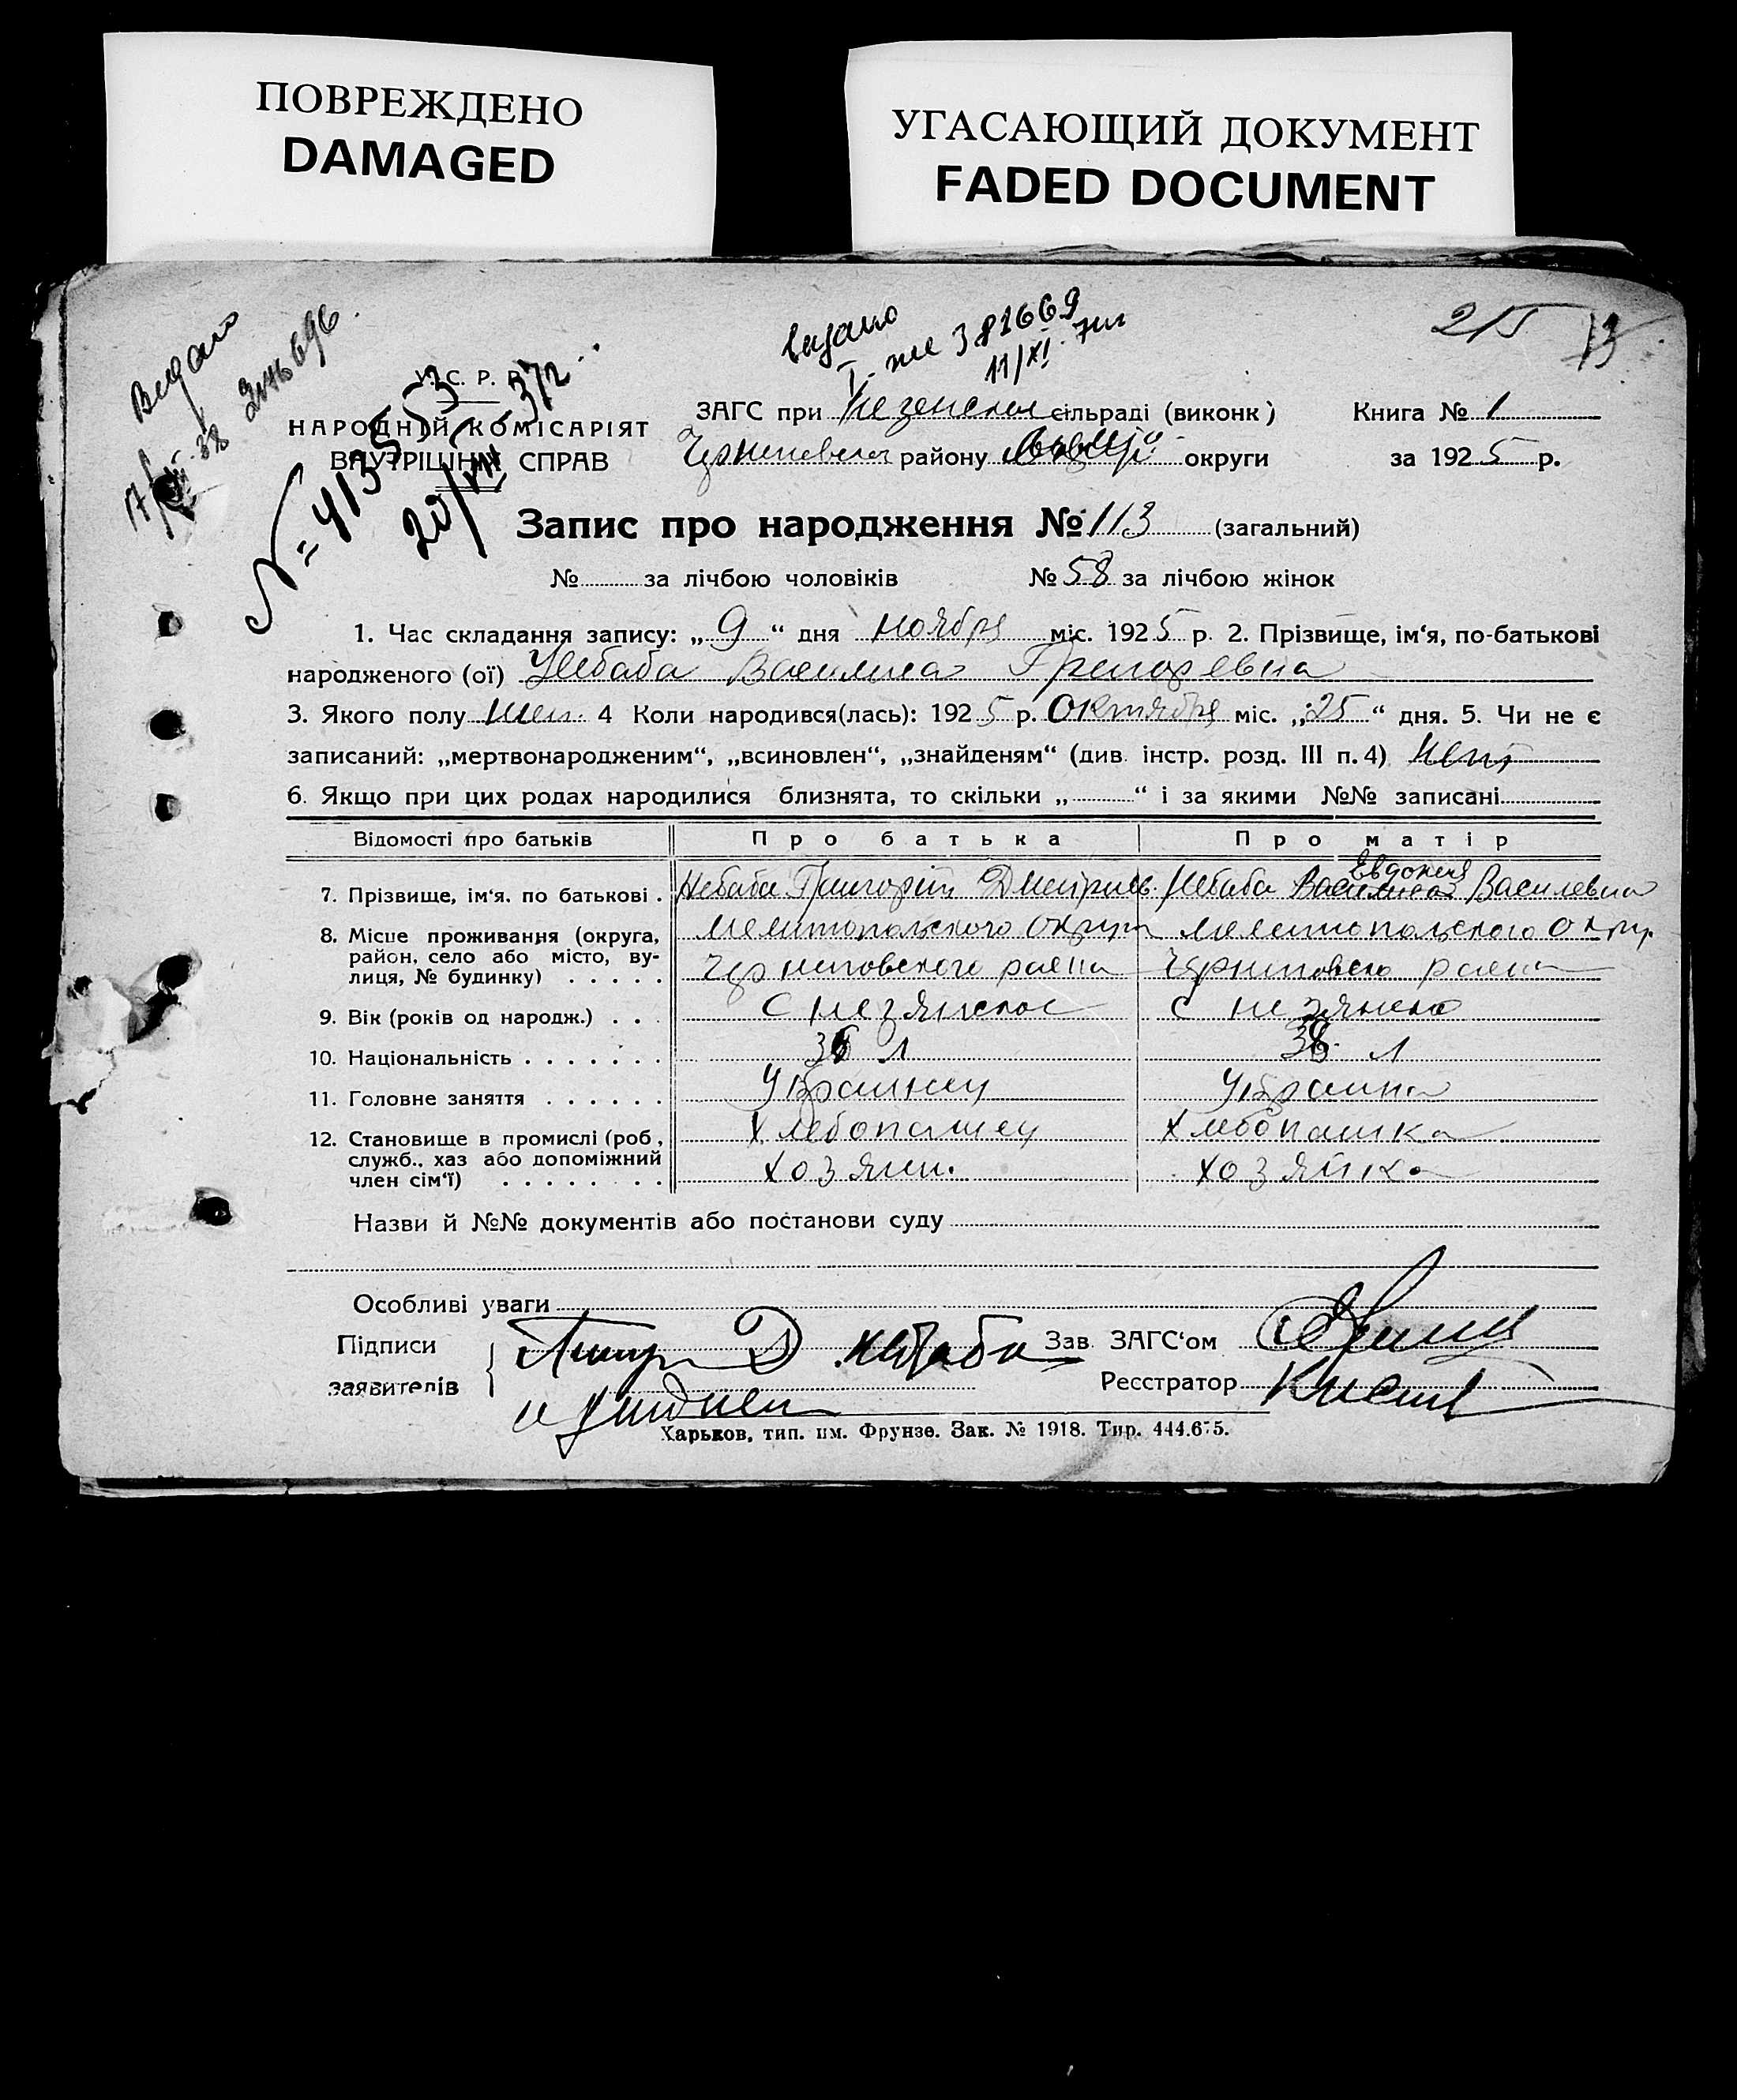 ПОВРЕЖДЕНО
DAMAGED
УГАСАЮЩИЙ ДОКУМЕНТ
FADED DOCUMENT
Видано
видано
381669
11/XI
215
У. С. Р. Р.
НАРОДНІЙ КОМІСАРІЯТ
ВНУТРІШНІХ СПРАВ
ЗАГС при сільраді (виконк)
району округи
Книга № 1
за 1925 р.
Запис про народження № 113 (загальний)
№ за лічбою чоловіків № 58 за лічбою жінок
1. Час складання запису: „9“ дня ноября міс. 1925 р. 2. Прізвище, ім‘я, по-батькові
народженого (ої) Небаба Василиса Григоревна
3. Якого полу жен. 4 Коли народився(лась): 1925 р. Октября міс. „25“ дня. 5. Чи не є
записаний: „мертвонародженим“, „всиновлен“, „знайденям“ (див. інстр. розд. III п. 4) нет
6. Якщо при цих родах народилися близнята, то скільки „ “ і за якими №№ записані
Відомості про батьків Про батька Про матір
7. Прізвище, ім‘я. по батькові . Небаба Григорий Дмитриев. Небаба Евдокия Василевна
8. Місце проживання (округа, район, село або місто, вулиця, № будинку) . . . . . Мелитопольского Округа Мелитопольского Округ
Черниговского раена раена
9. Вік (років од народж.) . . .
10. Національність . . . . . . . 36 л 38 л
11. Головне заняття . . . . . . Украинец Украинка
12. Становище в промислі (роб, служб., хаз або допоміжний член сім‘ї) . . . . . . . . Хлебопашец Хлебопашка
хозяин. хозяйка
Назви й №№ документів або постанови суду
Особливі уваги
Підписи
заявителів
Небаба
Зав. ЗАГС‘ом
Реєстратор
Харьков, тип. им. Фрунзе. Зак. № 1918. Тир. 444.675.